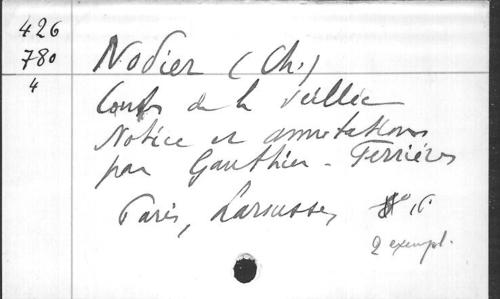 426
780
4
Nodier (Ch.)
Contes de la veillée
Notice et annotations
par Gauthier-Ferrières
Paris, Larousse,
2 exempl.